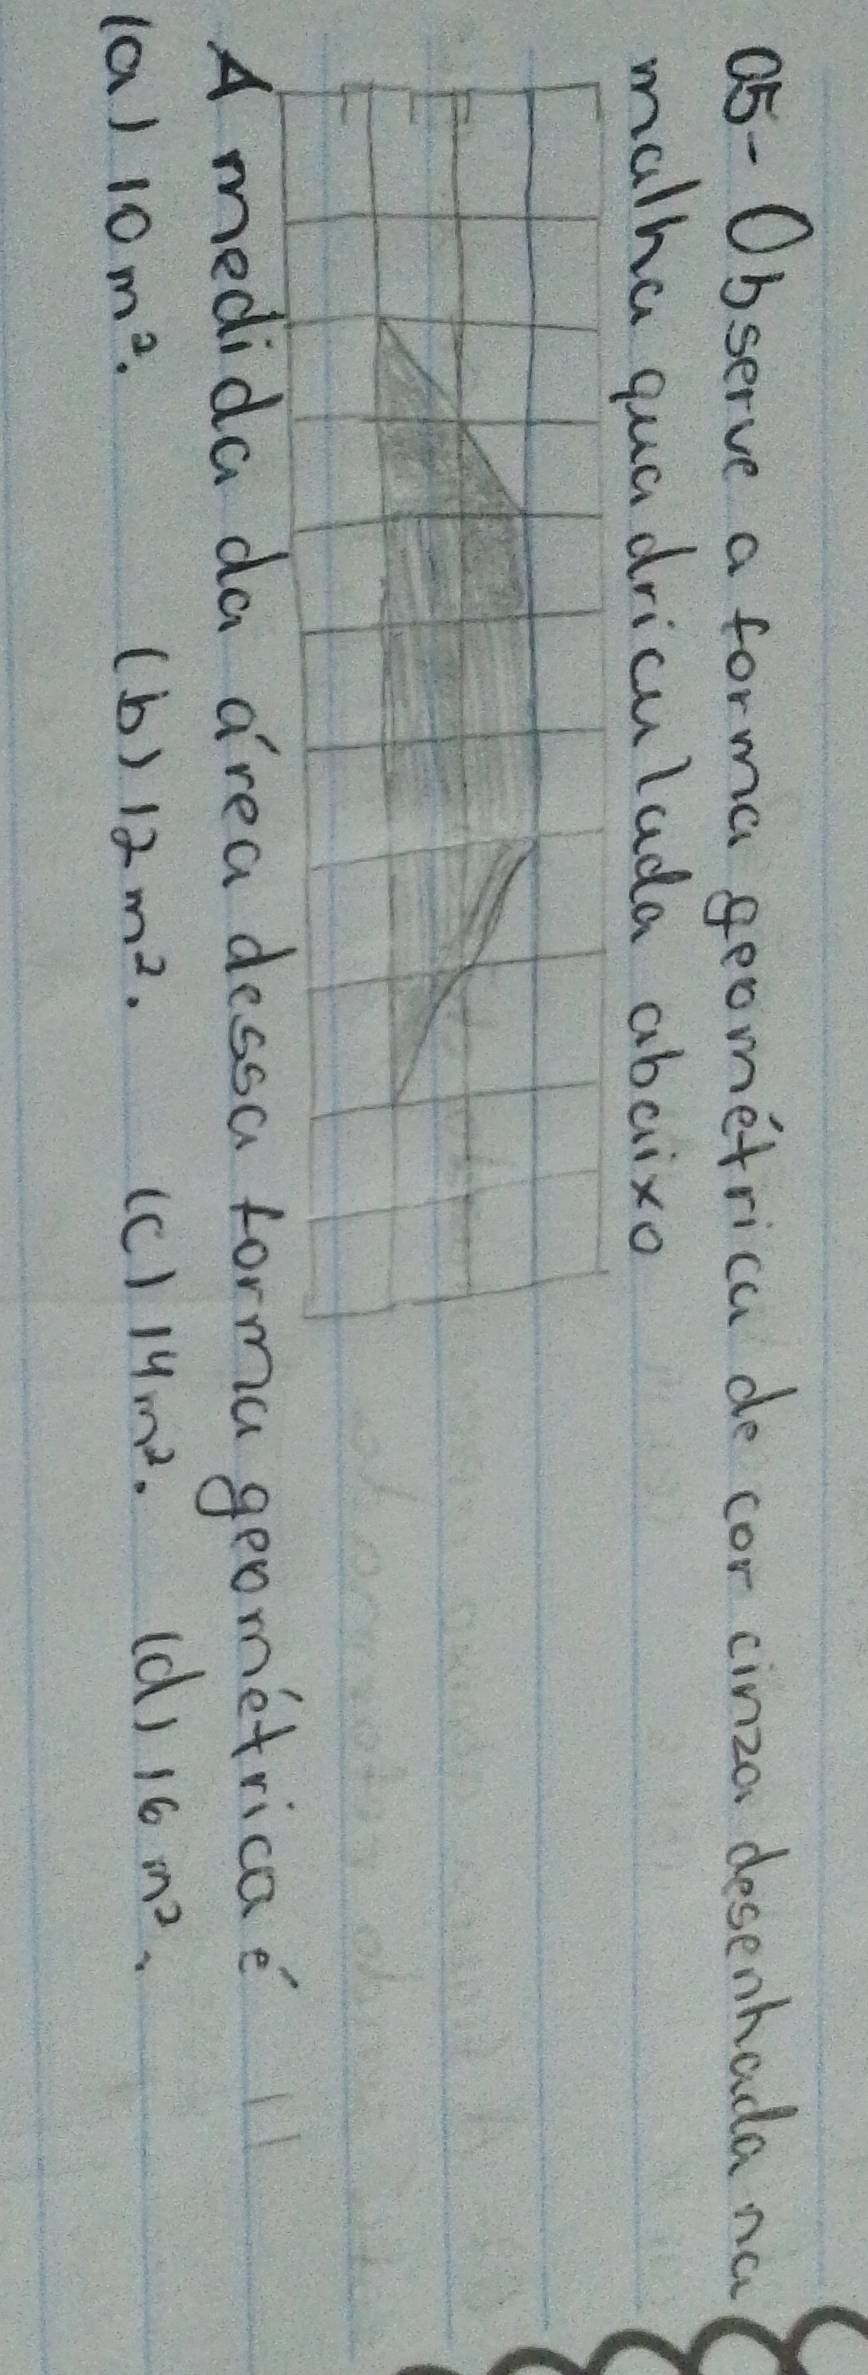 05- Observe a forma geométrica de cor cinza desenhada na
malha quadriculada abaixo
A medida da área dessa forma geométrica é
(a) 10 m². (b) 12 m². (c) 14 m². (d) 16 m².